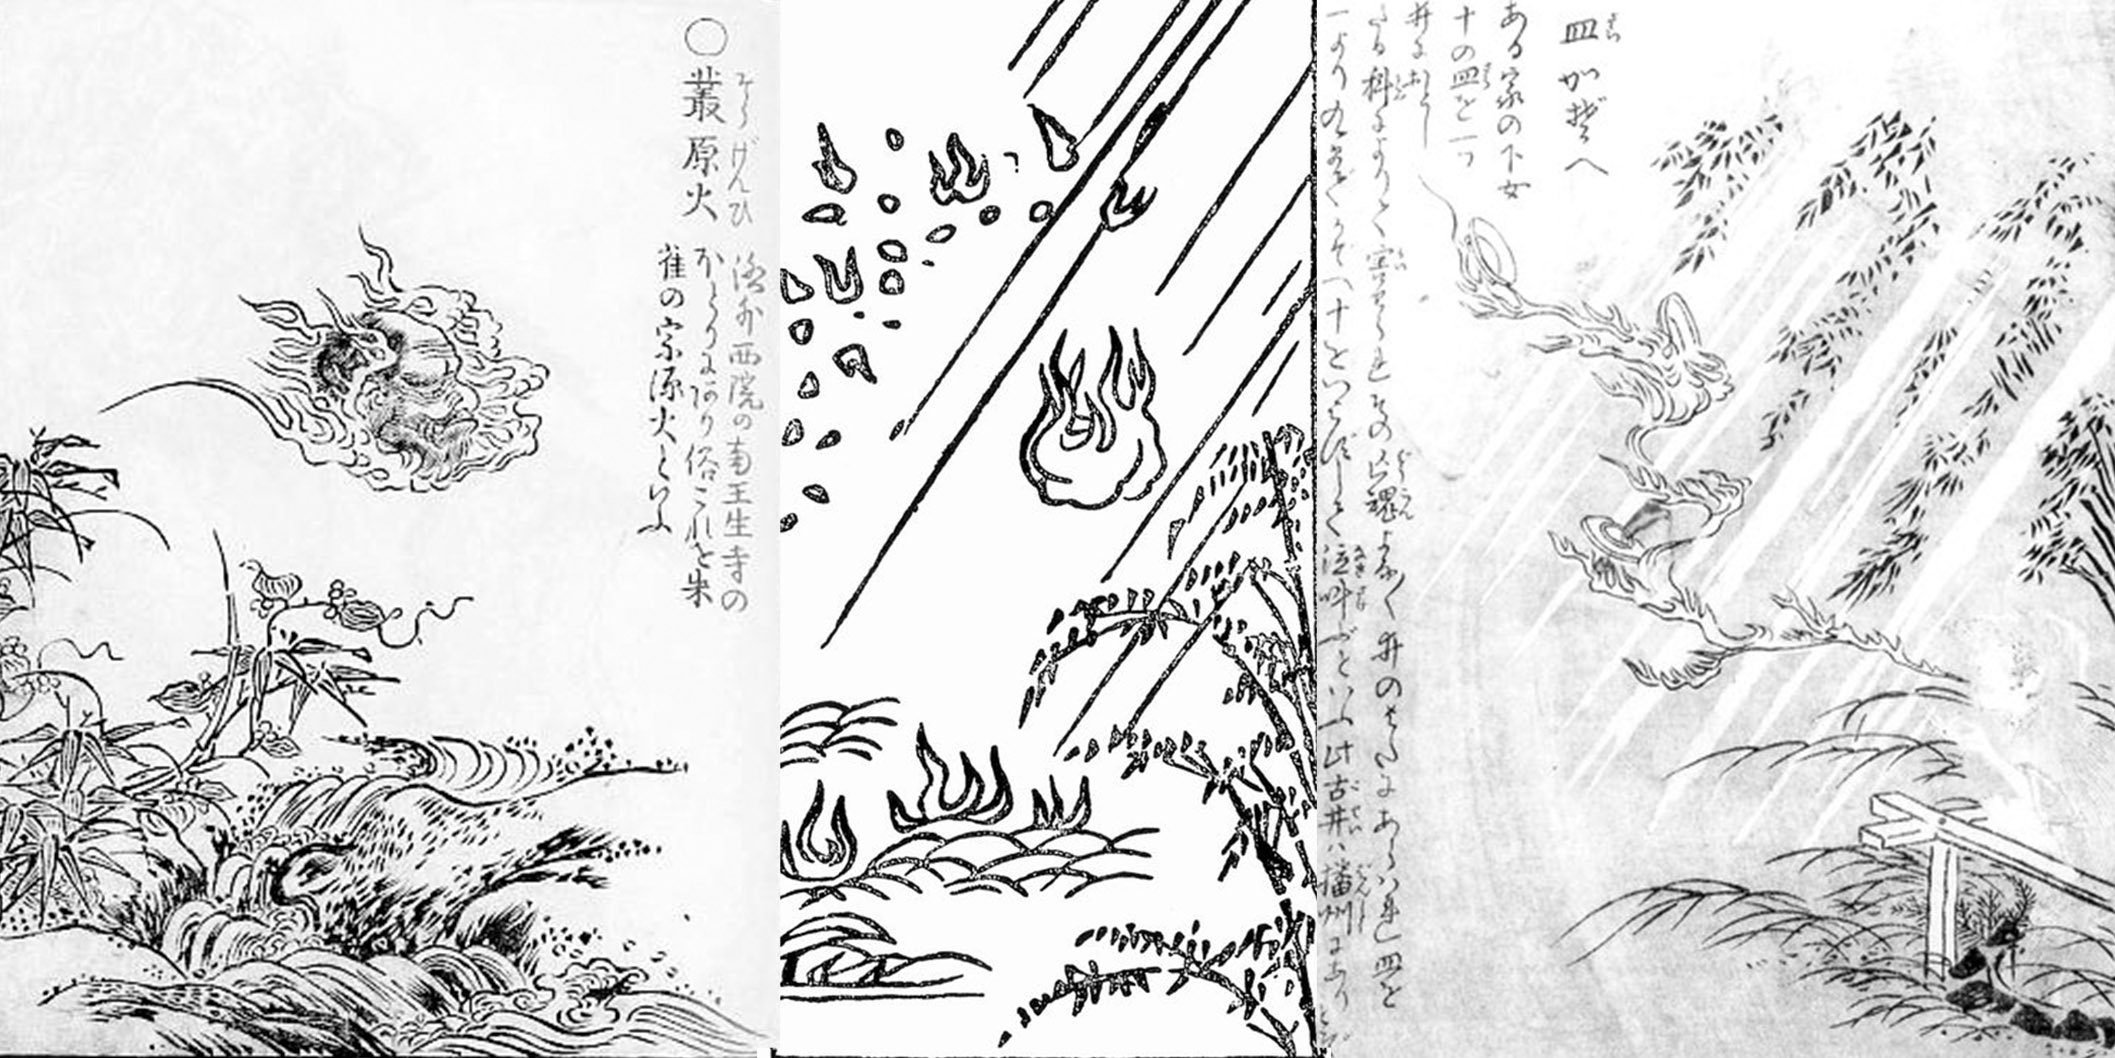 ○叢原火
そうげんひ
洛外西院の南壬生寺の
ほとりにあり俗これを朱
雀の宗源火といふ
皿かぞへ
さら
ある家の下女
十の皿を一ツ
井におとし
たる科によりて害せられその亡魂よな〱井のはたにあらはれ皿を
一より九までかぞへ十といはずして泣叫ぶといふ此古井は播州にありとぞ